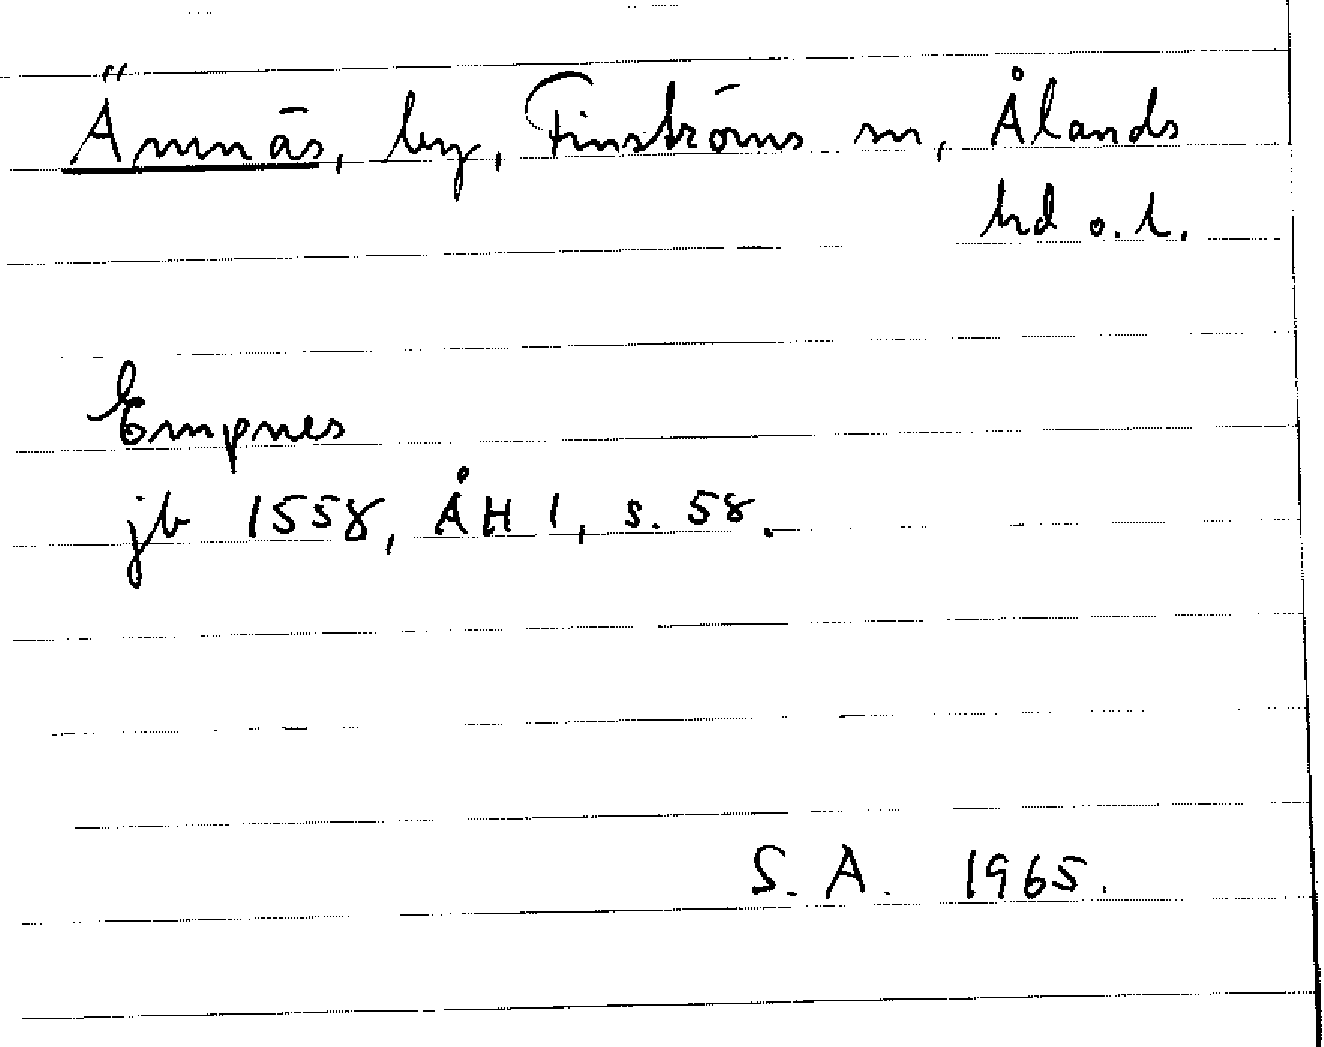 Ämnäs, by, Finströms sn, Ålands
hd o. l.
Empnes
jb 1558, ÅH 1, s. 58.
S. A. 1965.